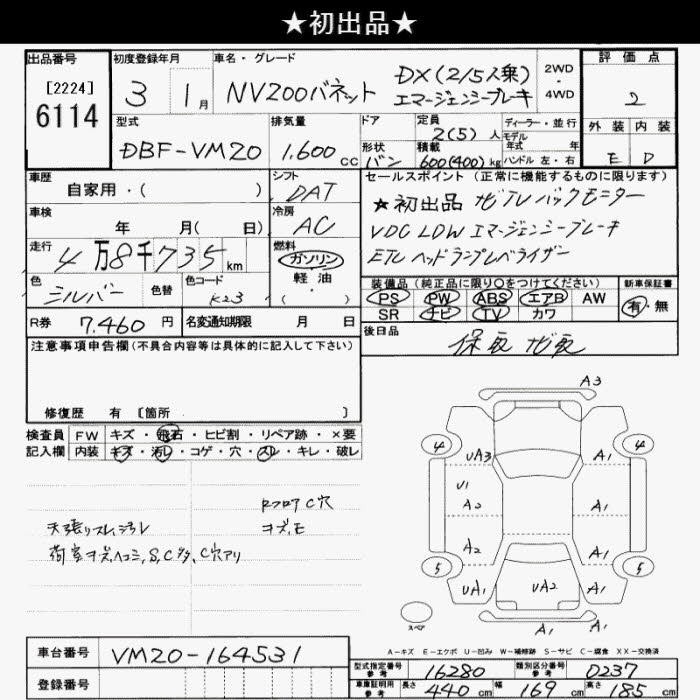 ★初出品★
出品番号
[2224]
6114
初度登録年月
3 1月
車名・グレード
NV200バネット DX(2/5人乗)
エマージェンシーブレーキ
2WD
・
4WD
評価点
2
外装 内装
E D
型式
DBF-VM20
排気量
1,600cc
ドア
形状
バン
定員
2(5)人
積載
600(400)kg
ディーラー・並行
モデル
年式 年
ハンドル 左・右
車歴
自家用・( )
シフト
DAT
車検
年 月( 日)
冷房
AC
走行
4万8千735km
燃料
ガソリン
・
軽油
・
( )
色
シルバー
色替
色コード
K23
R券
7,460円
名変通知期限 月 日
セールスポイント(正常に機能するものに限ります)
★初出品 ナビTVバックモニター
VDC LDW エマージェンシーブレーキ
ETC ヘッドランプレベライザー
装備品(純正品に限り○をつけてください)
PS PW ABS エアB AW
SR ナビ TV カワ
新車保証書
有・無
後日品
保取 ナビ取
注意事項申告欄(不具合内容等は具体的に記入して下さい)
修復歴 有 〔箇所 〕
検査員
記入欄
FW キズ・飛石・ヒビ割・リペア跡・×要
内装 キズ・汚レ・コゲ・穴・スレ・キレ・破レ
RフロアC穴
天張りスレ、汚レ
キズ、モ
荷室キズ、ヘコミ,S,Cタ,C穴アリ
A3
4 4
UA3 A1
U1
A2 A1
A2 A1
5 5
UA1 UA2 A1
A1 A1
スペア
A-キズ E-エクボ U-凹み W-補修跡 S-サビ C-腐食 XX-交換済
車台番号
VM20-164531
登録番号
型式指定番号
参考
16280
類別区分番号
参考
0237
車庫証明用
参考
長さ 440cm
幅 169cm
高さ 185cm